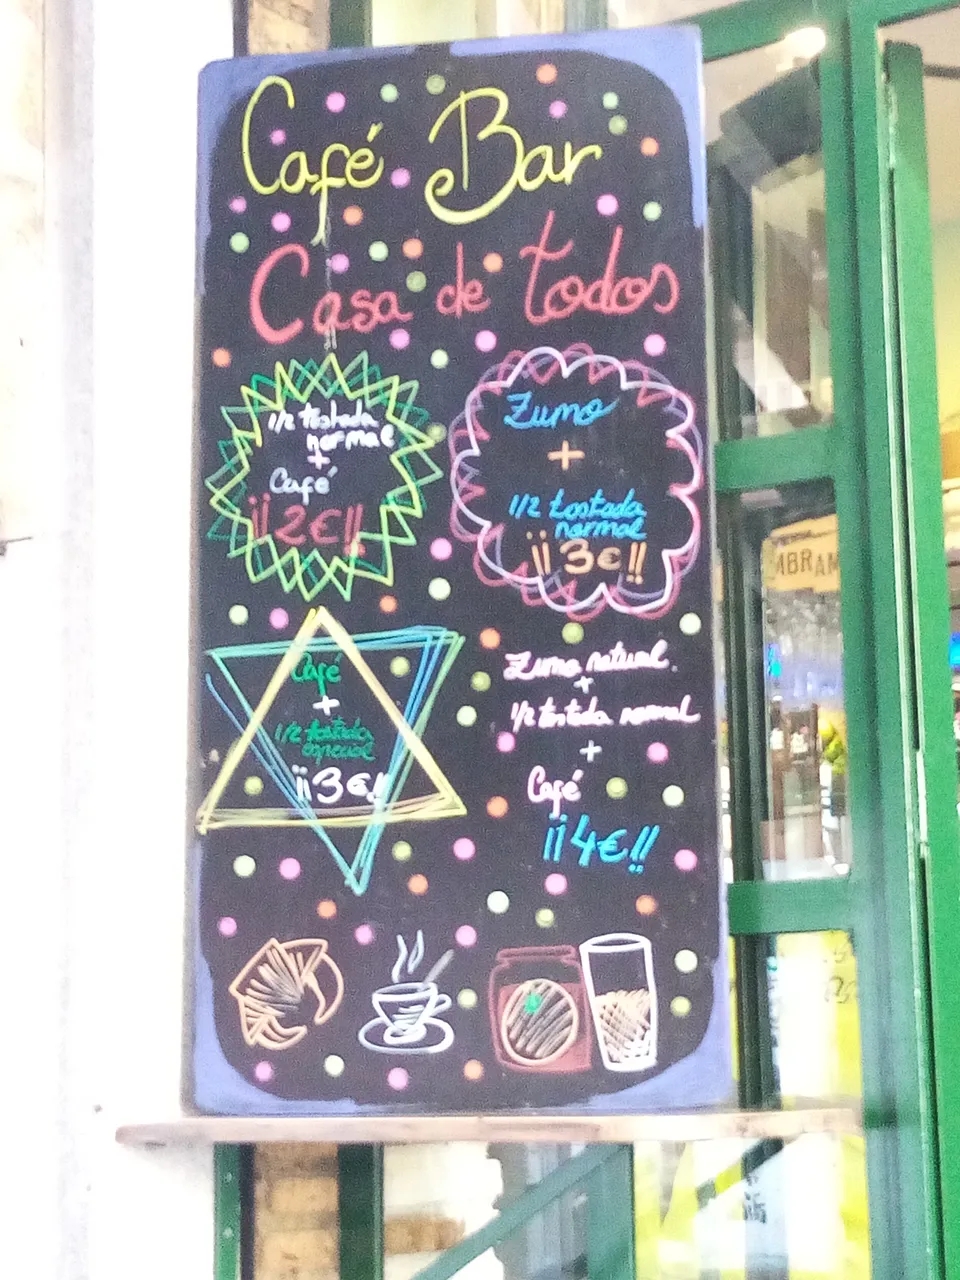 Café Bar
Casa de todos
1/2 tostada
normal
+
Café
¡¡2€!!
Zumo
+
1/2 tostada
normal
¡¡3€!!
Café
+
1/2 tostada
especial
¡¡3€!!
Zumo natural.
+
1/2 tostada normal
+
Café
¡¡4€!!